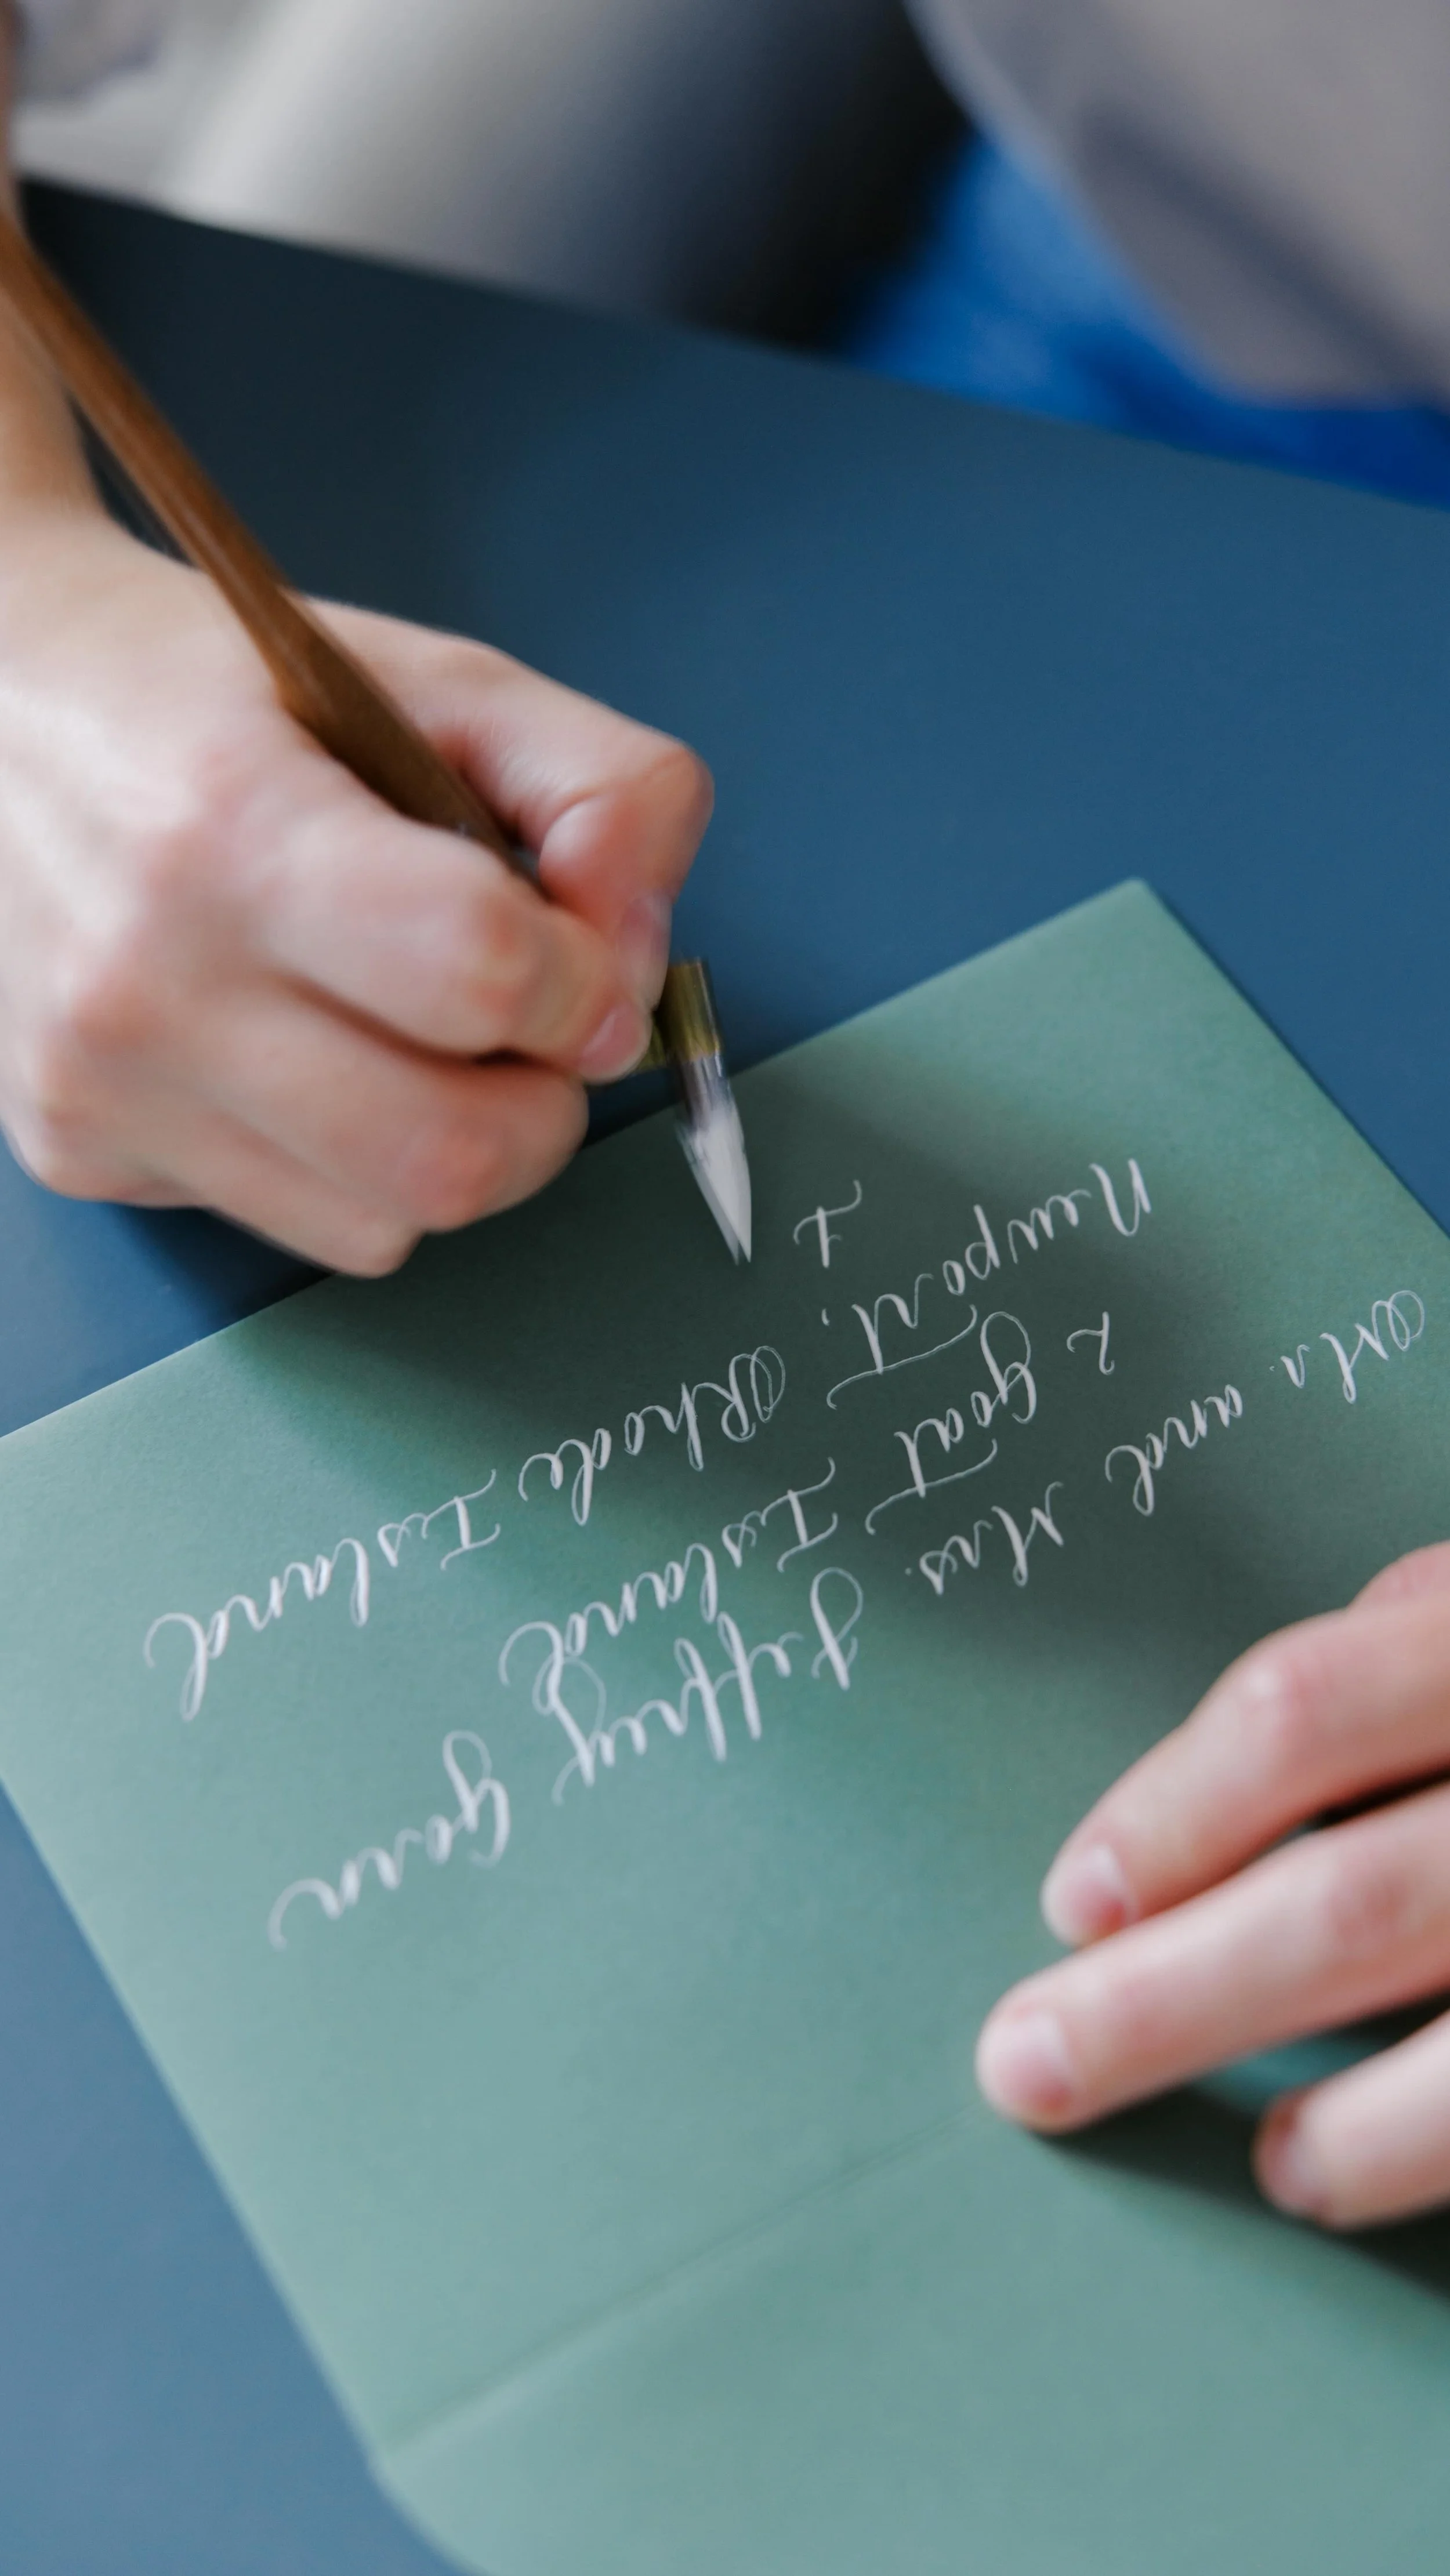 Mr. and Mrs. Jeffrey Goin
2 Goat Island
Newport, Rhode Island